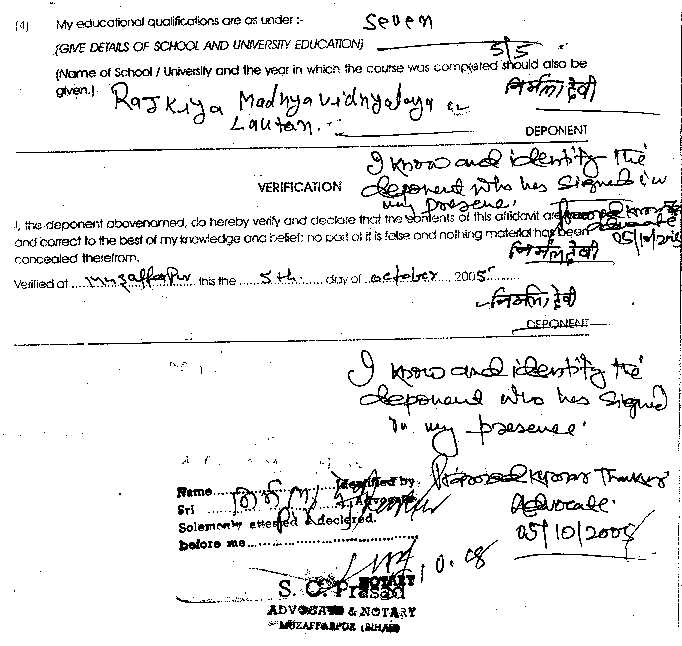 (4) My educational qualifications are as under :- Seven
(GIVE DETAILS OF SCHOOL AND UNIVERSITY EDUCATION) 5/5
(Name of School / University and the year in which the course was completed should also be
given.) Rajkiya Madhya Vidhyalaya
Lautan. निर्मला देवी
DEPONENT
I know and identify the
VERIFICATION deponent who has signed in
my presence.
I, the deponent abovenamed, do hereby verify and declare that the contents of this affidavit are
and correct to the best of my knowledge and belief; no part of it is false and nothing material has been 05/10/2005
concealed therefrom. निर्मला देवी
Verified at Muzaffarpur this the 5th day of October 2005
निर्मला देवी
DEPONENT
I know and identify the
deponent who has signed
in my presence.
Name Identified by Thakur
Sri Advocate Advocate.
Solemnly attested & declared. 05/10/2005
before me
NOTARY
S. C. Prasad
ADVOCATE & NOTARY
MUZAFFARPUR (BIHAR)